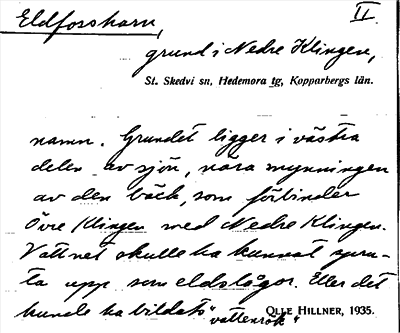 Eldforsharn, II.
grund i Nedre Klingen,
St. Skedvi sn, Hedemora tg, Kopparbergs län.
namn. Grundet ligger i västra
delen av sjön, nära mynningen
av den bäck, som förbinder
Övre Klingen med Nedre Klingen.
Vattnet skulle ha kunnat spru-
ta upp som eldslågor. Eller det
kunde ha bildats
"vattenrök"
OLLE HILLNER, 1935.